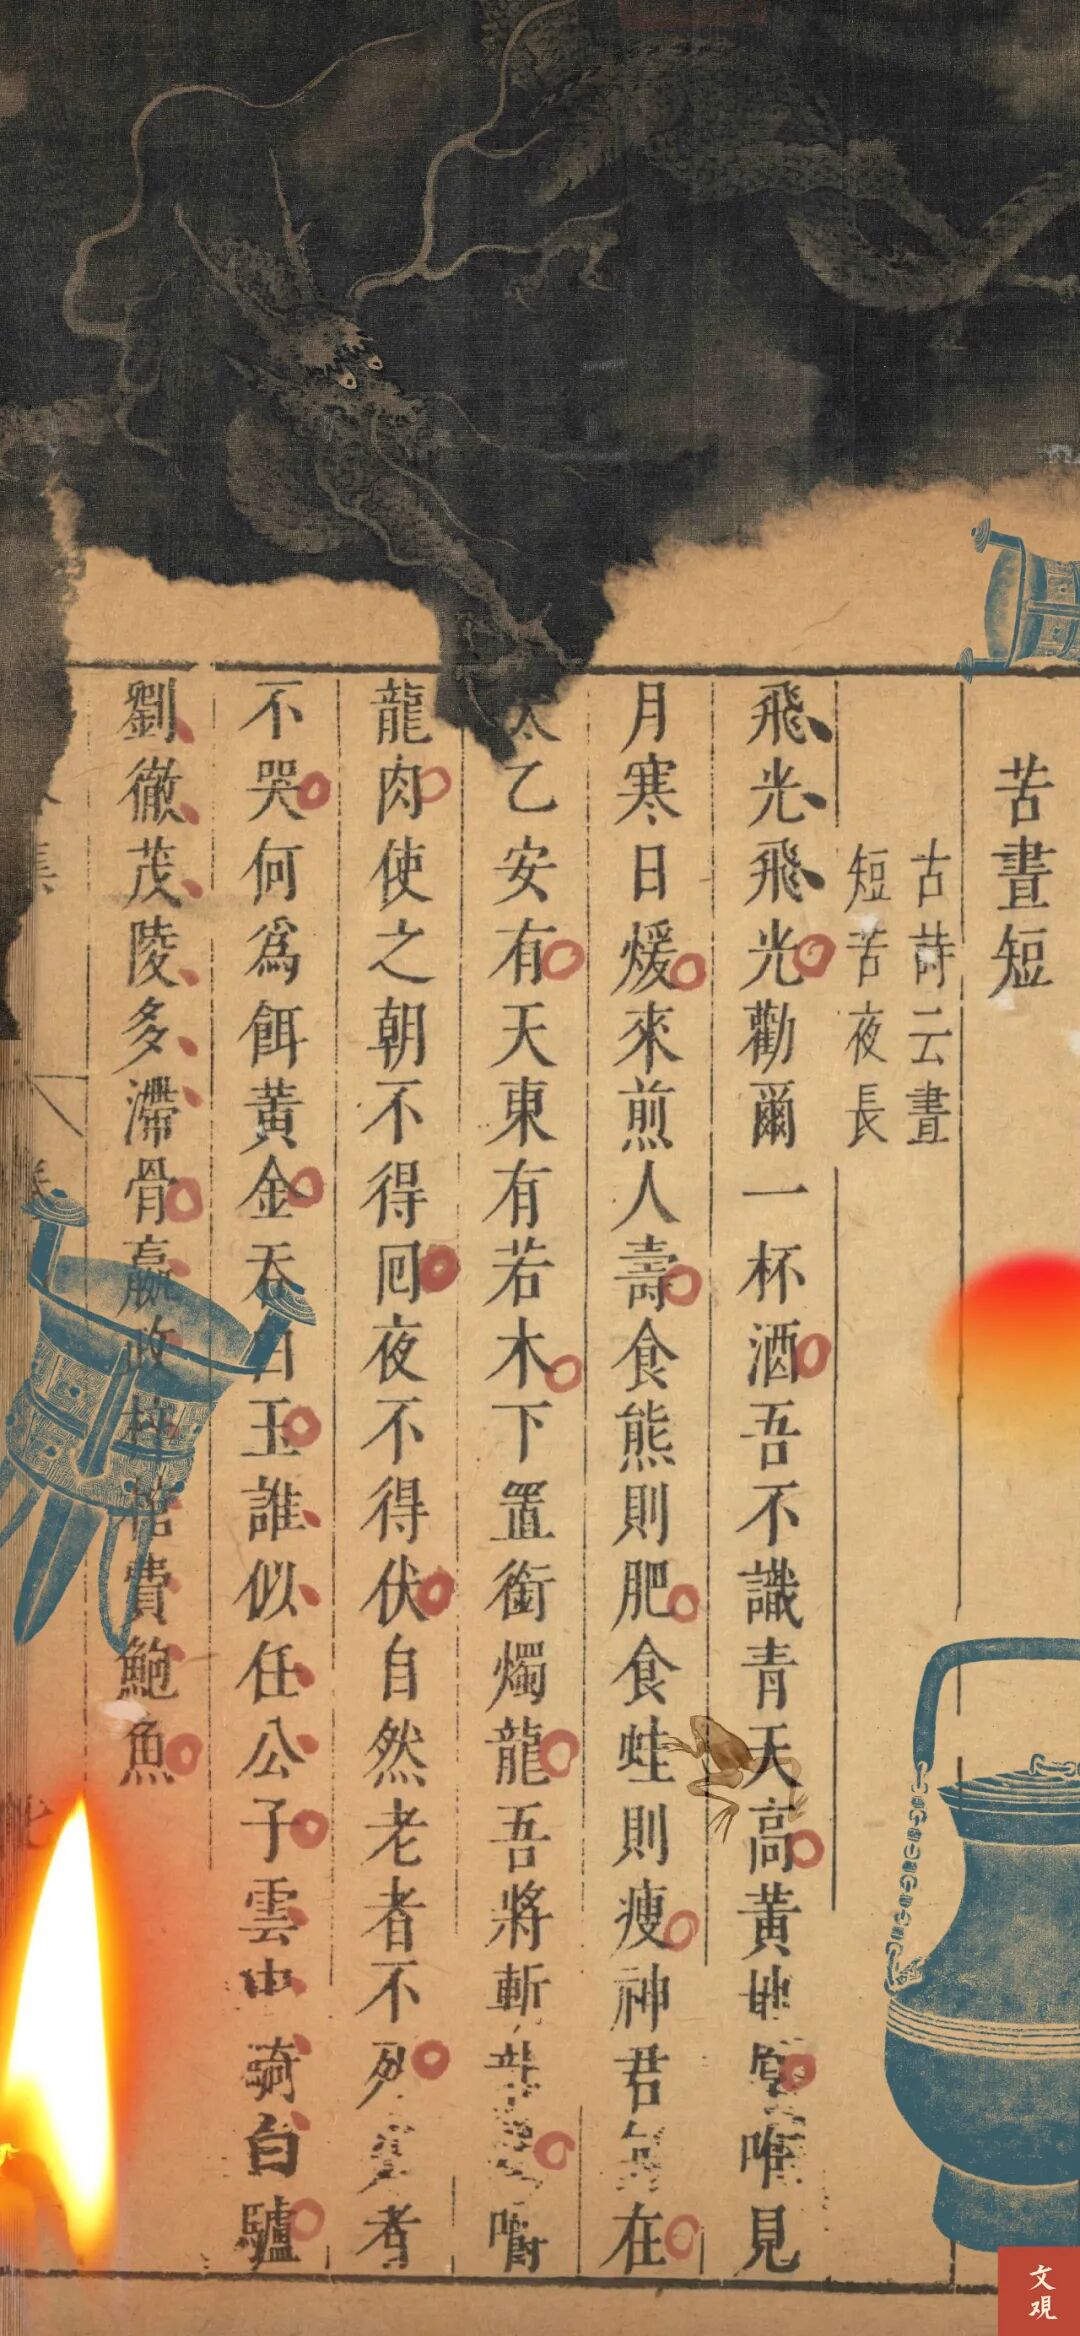 苦晝短
古詩云晝
短苦夜長
飛光飛光勸爾一杯酒吾不識青天高黃地唯見
月寒日煖來煎人壽食熊則肥食蛙則瘦神君在
太乙安有天東有若木下置銜燭龍吾將斬嚼
龍肉使之朝不得囘夜不得伏自然老者不死者
不哭何爲餌黃金吞白玉誰似任公子雲中騎白驢
劉徹茂陵多滯骨嬴政梓棺費鮑魚
文覌